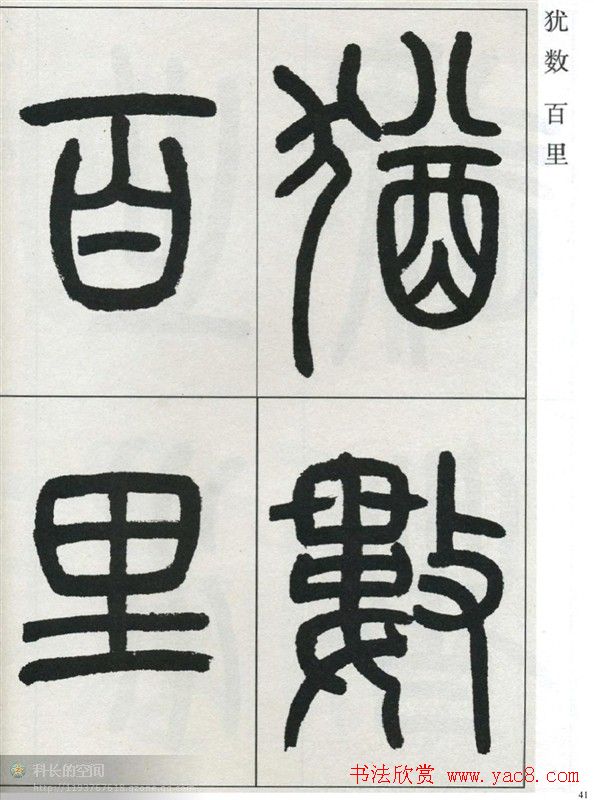 犹数 百里
猶數
百里
科长的空间
http://1193767618.qzone.qq.com
书法欣赏 www.yac8.com
41